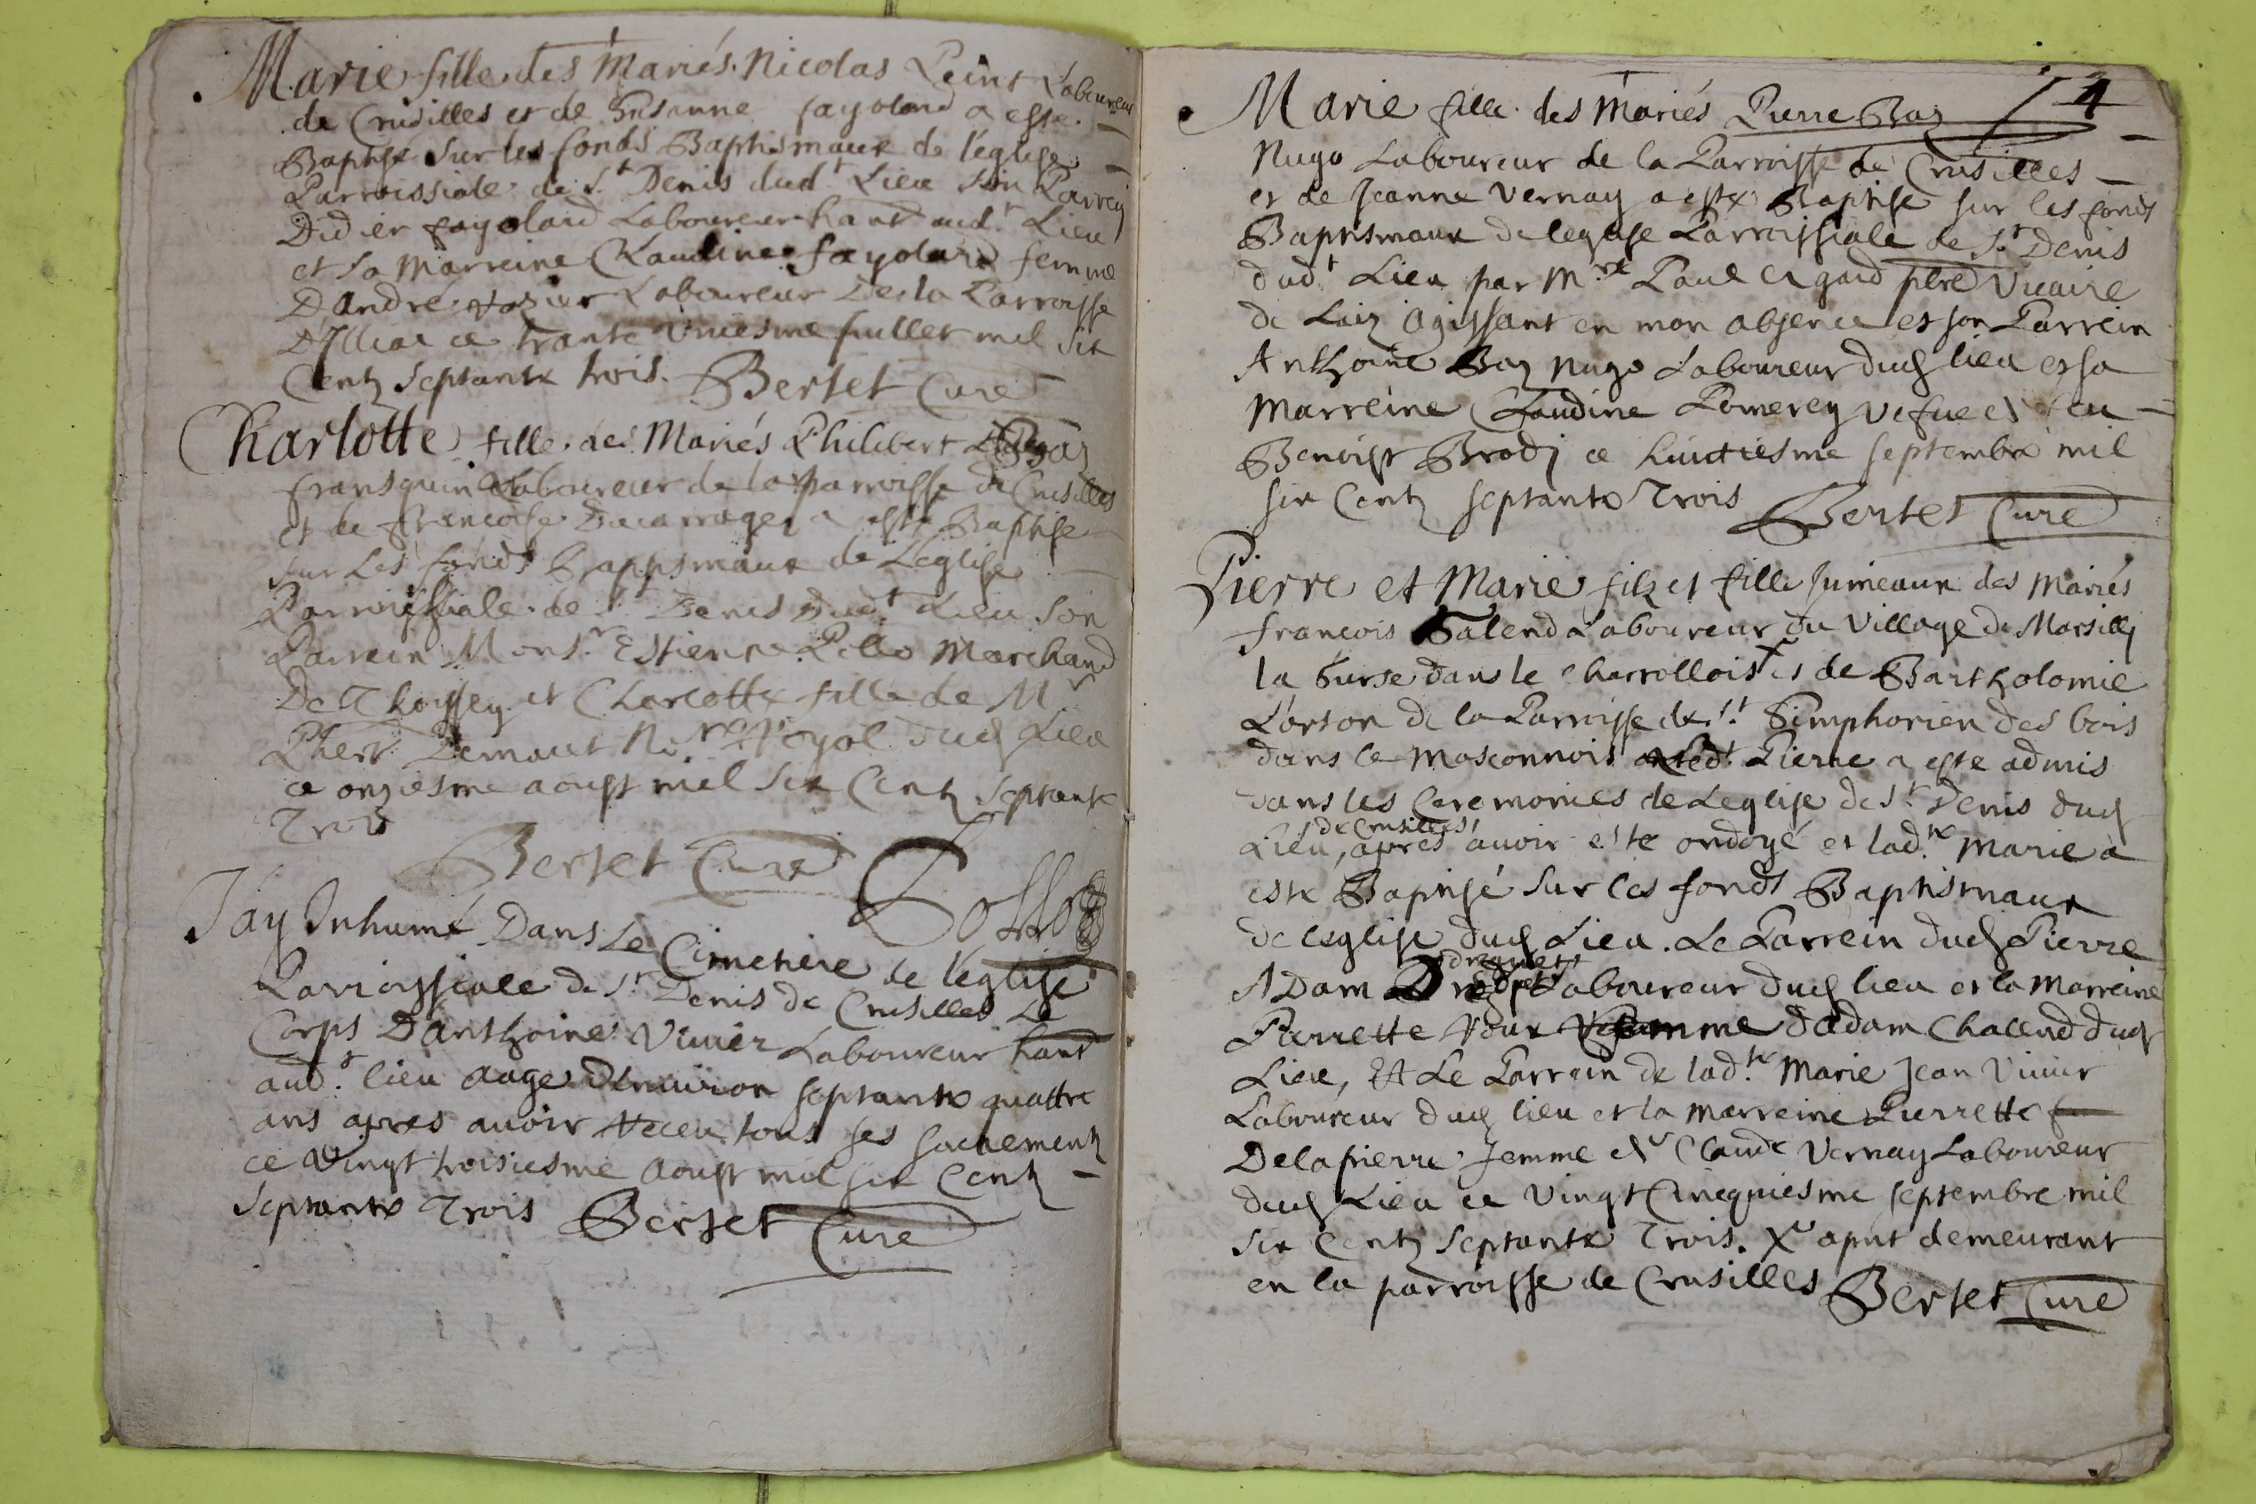 Marie fille des Mariés Nicolas Peint Laboureur
de Crusilles et de Susanne fayolard a este
Baptise sur les fonds Baptismaux de l'eglise
Parroissiale de St Denis dudt Lieu son Parrein
Didier fayolard Laboureur hant audt Lieu
et sa Marreine Claudine fayolard femme
D'andré Laboureur de la Parroisse
D'Illiat ce trante uniesme juillet mil six
Centz septante trois. Bertet Curé
Charlotte fille des Mariés Philibert
fransquin Laboureur de la parroisse de Crusilles
et de francoise a este Baptise
sur Les fonds Baptismaux de L'eglise
Parroissiale de St Denis dudt Lieu son
Parrein Monsr Estienne Marchand
De Thoissey et Charlotte fille de Mr
Phert Demaut Nore Royal dud Lieu
ce onziesme aoust mil six Centz septante
Trois
Bertet Curé
J'ay Inhumé Dans Le Cimetiere de l'eglise
Parroissiale de St Denis de Crusilles Le
Corps D'anthoine Vivier Laboureur hant
audt lieu aage D'environ septante quattre
ans apres avoir receu tous ses sacrementz
ce vingt troisiesme Aoust mil six Centz
septante Trois Bertet Curé
74
Marie fille des Mariés Pierre Baz
Nugo Laboureur de la Parroisse de Crusilles
et de Jeanne Vernay a este Baptise sur les fonds
Baptismaux de l'eglise Parroissiale de St Denis
dudt Lieu par Mre Paul Agard pbre Vicaire
de Laiz Agissant en mon absence et son Parrein
Anthoine Baz Nugo Laboureur dud lieu et sa
Marreine Claudine Pomerey vefue de feu
Benoist Brodz ce huictiesme septembre mil
six Centz septante Trois Bertet Curé
Pierre et Marie filz et fille Jumeaux des Mariés
françois Salend Laboureur du Village de Marsilly
la Gurse dans le Charrollois X et de Bartholomie
Lorton de la Parroisse de St Simphorien des bois
dans le Masconnois Ledt Pierre a este admis
dans les Ceremonies de L'eglise de St Denis dud
de Crusilles
Lieu, apres avoir este ondoyé et ladte Marie a
este Baptisé sur les fonds Baptismaux
de l'eglise dud Lieu. Le Parrein dud Pierre
Adam Laboureur dud lieu et la Marreine
Pierrette Roux femme d'adam Chalend dud
Lieu, Et Le Parrein de ladte Marie Jean Vivier
Laboureur dud lieu et la Marreine Pierrette
Delapierre femme de Claude Vernay Laboureur
dud Lieu ce vingt Cincquiesme septembre mil
six Centz septante Trois. X apnt demeurant
en la parroisse de Crusilles Bertet Curé